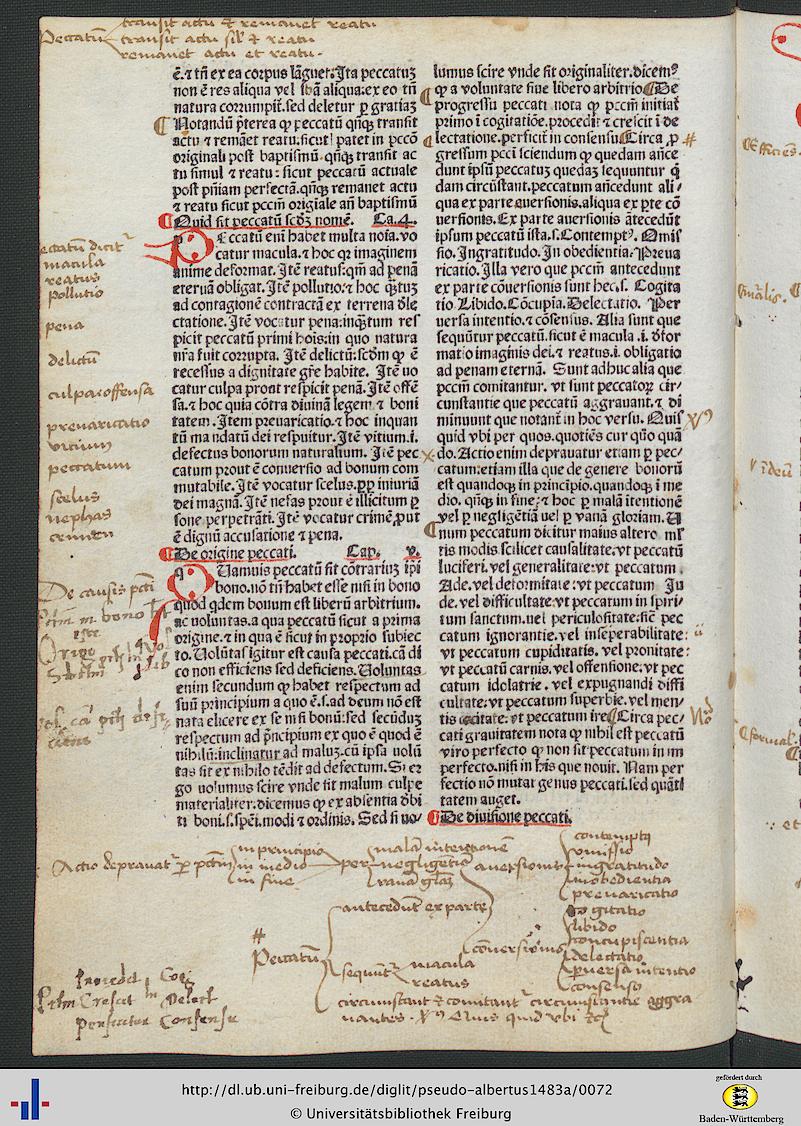 Peccatum
transit actu et remanet reatu
transit actu simul et reatu
remanet actu et reatu.
ē. ⁊ tn̄ ex ea corpus lāguet. Ita peccatuꝫ
non ē res aliqua vel sb̄a aliqua. ex eo tn̄
natura corrumpit̄. sed deletur ꝑ gratiaꝫ
Notandū p̄terea ꝙ peccatū qn̄qꝫ transit
actu ⁊ remāet reatu. sicut patet in pccō
originali post baptismū. qn̄qꝫ transit ac
tu simul ⁊ reatu: sicut peccatū actuale
post pn̄iam perfectā. qn̄qꝫ remanet actu
⁊ reatu sicut pccm̄ origīale an̄ baptismū
Quid sit peccatū scd̄ꝫ nomē. Ca. 4.
Peccatū eni habet multa noīa. vo
catur macula. ⁊ hoc qꝛ imaginem
anime deformat. Itē reatus: qm̄ ad penā
eternā obligat. Itē pollutio: ⁊ hoc qꝫtuꝫ
ad contagionē contractā ex terrena dile
ctatione. Itē vocatur pena: inqꝫtum res
picit peccatū primi hoīs: in quo natura
nr̄a fuit corrupta. Itē delictū: scd̄m ꝙ ē
recessus a dignitate gr̄e habite. Itē uo
catur culpa prout respicit penā. Itē offē
sa. ⁊ hoc quia cōtra diuinā legem ⁊ boni
tatem. Itēm preuaricatio. ⁊ hoc inquan
tū mandatū dei respuitur. Itē vitium. i.
defectus bonorum naturalium. Itē pec
catum prout ē conuersio ad bonum com
mutabile. Itē vocatur scelus. ꝓpter iniuriā
dei magnā. Itē nefas prout ē illicitum ꝑ
sone perpetrāti. Itē vocatur crimē, ꝓut
ē dignū accusatione ⁊ pena.
De origine peccati. Cap. v.
Quamuis peccatū sit cōtrariuꝫ ip̄i
bono. nō tn̄ habet esse nisi in bono
quod qdem bonum est liberū arbitrium.
ac voluntas. a qua peccatū sicut a prima
origine. ⁊ in qua ē sicut in proprio subiec
to. Volūtas igitur est causa peccati. cā di
co non efficiens sed deficiens. Voluntas
enim secundum ꝙ habet respectum ad
suū principium a quo ē. s. ad deum nō est
nata elicere ex se nisi bonū: sed secūduꝫ
respectum ad p̄ncipium ex quo ē quod ē
nihilū: inclinatur ad maluꝫ. cū ipsa uolū
tas sit ex nihilo tēdit ad defectum. Si er
go uolumus scire vnde sit malum culpe
materialiter. dicemus ꝙ ex absentia dēbi
ti boni. s. spēi. modi ⁊ ordinis. Sed si uo
lumus scire vnde sit originaliter. dicemꝰ
ꝙ a voluntate siue libero arbitrio De
progressu peccati nota ꝙ pccm̄ initiat̄
primo ī cogitatiōe. procedit ⁊ crescit ī de
lectatione. perficit̄ in consensu Circa ꝓ
gressum pccī sciendum ꝙ quedam an̄ce
dunt ipsū peccatuꝫ quedaꝫ sequuntur q̄
dam circūstant. peccatum an̄cedunt ali
qua ex parte auersionis. aliqua ex pte cō
uersionis. Ex parte auersionis ātecedūt
ipsum peccatū ista. s. Contemptꝰ. Omis
sio. Ingratitudo. In obedientia. Preua
ricatio. Illa vero que pccm̄ antecedunt
ex parte cōuersionis sunt hec. s. Cogita
tio. Libido. Cōcupīa. Delectatio. Per
uersa intentio. ⁊ cōsensus. Alia sunt que
sequūtur peccatū. sicut ē macula. i. dēfor
matio imaginis dei. ⁊ reatus. i. obligatio
ad penam eternā. Sunt adhuc alia que
pccm̄ comitantur. vt sunt peccatoꝝ cir
cunstantie que peccatū aggrauant. ⁊ di
minuunt que notant̄ in hoc versu. Quis
quid vbi per quos. quotiēs cur qūo quā
do. Actio enim deprauatur etiam ꝑ pec
catum: etiam illa que de genere bonorū
est quandoqꝫ in principio. quandoqꝫ ī me
dio. qn̄qꝫ in fine: ⁊ hoc ꝑ malā ītentionē
vel ꝑ negligētiā uel ꝑ vanā gloriam. U
num peccatum dicitur maius altero ml̄
tis modis scilicet causalitate: vt peccatū
luciferi. vel generalitate: vt peccatum
Ade. vel deformitate: vt peccatum Ju
de. vel difficultate: vt peccatum in spiri
tum sanctum. uel periculositate: sic pec
catum ignorantie. vel inseperabilitate:
vt peccatum cupiditatis. vel pronitate:
vt peccatū carnis. vel offensione: vt pec
catum idolatrie. vel expugnandi diffi
cultate: vt peccatum superbie. vel men
tis cecitate: vt peccatum ire Circa pec
cati grauitatem nota ꝙ nihil est peccatū
viro perfecto ꝙ non sit peccatum in im
perfecto. nisi in his que nouit. Nam per
fectio nō mutat genus peccati. sed quāti
tatem auget.
De diuisione peccati.
macula
reatus
pollutio
pena
delictū
culpa offensa
preuaricatio
vitium
peccatum
scelus
nephas
crimen
De causis pcti
Actio deprauatur per pctm
in principio
in medio
in fine
per
malā intentionē
negligētiā
vanā gloriā
antecedunt ex parte
auersionis
contemptus
omissio
ingratitudo
inobedientia
preuaricatio
conuersionis
cogitatio
libido
concupiscentia
delectatio
peruersa intentio
consensus
# Peccatum
sequuntur
macula
reatus
circumstant et comitantur circumstantie aggra
uantes. Quis quid vbi etc
Procedit Cogi
Pctm Crescit in Delect
perficitur Consensu
http://dl.ub.uni-freiburg.de/diglit/pseudo-albertus1483a/0072
© Universitätsbibliothek Freiburg
gefördert durch
Baden-Württemberg